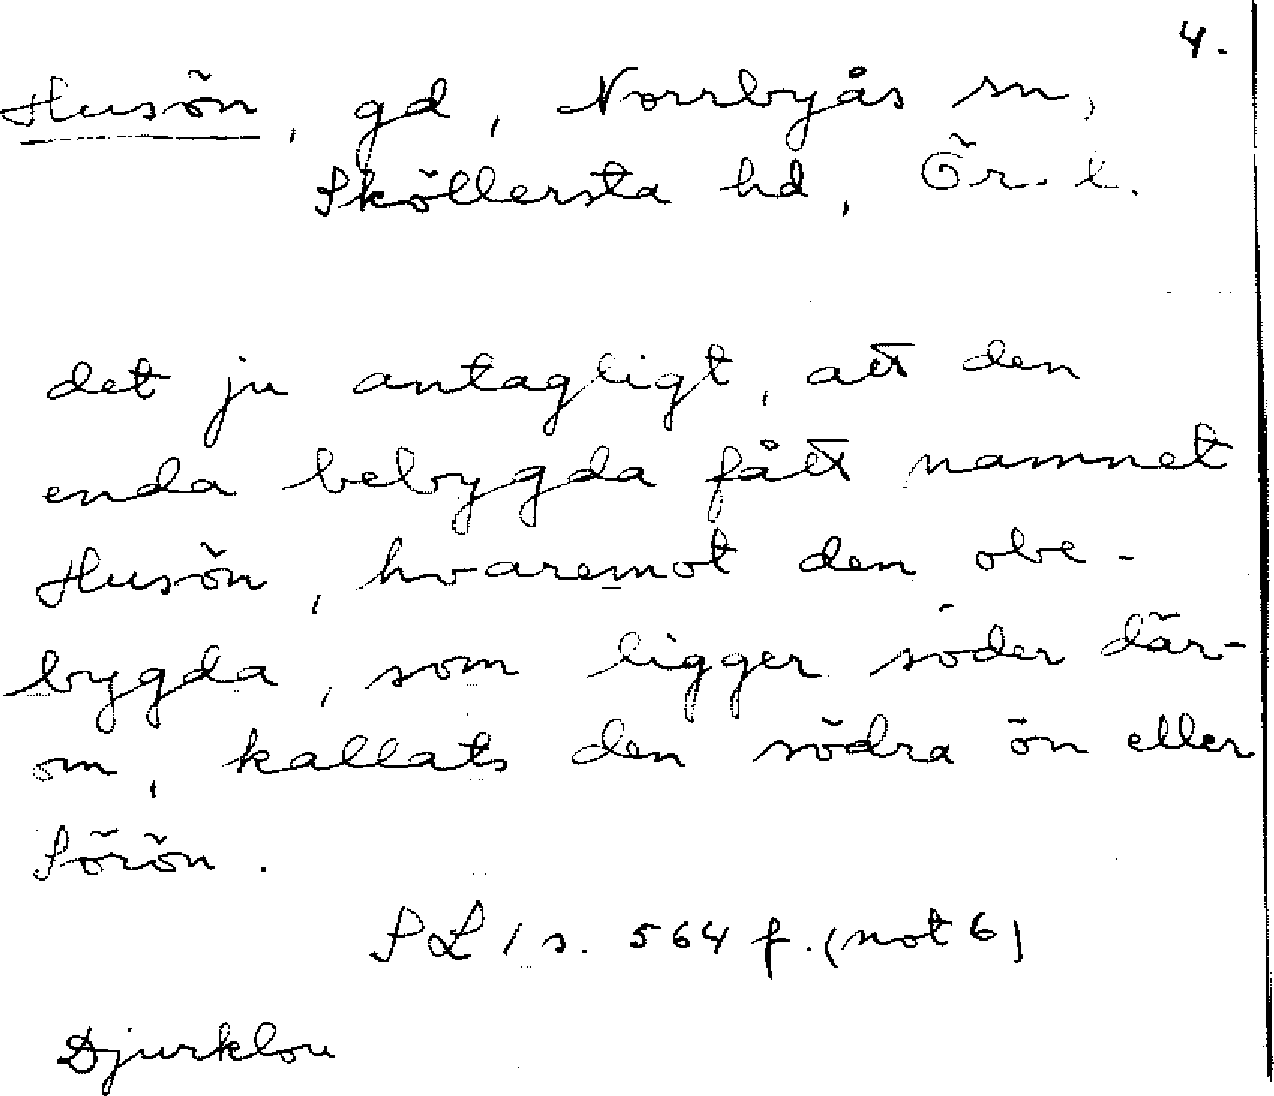 4.
Husön, gd, Norrbyås sn,
Sköllersta hd, Ör. l.
det ju antagligt, att den
enda bebygda fått namnet
Husön, hvaremot den obe-
bygda, som ligger söder där-
om, kallats den södra ön eller
Sörön.
SL 1 s. 564 f. (not 6)
Djurklou